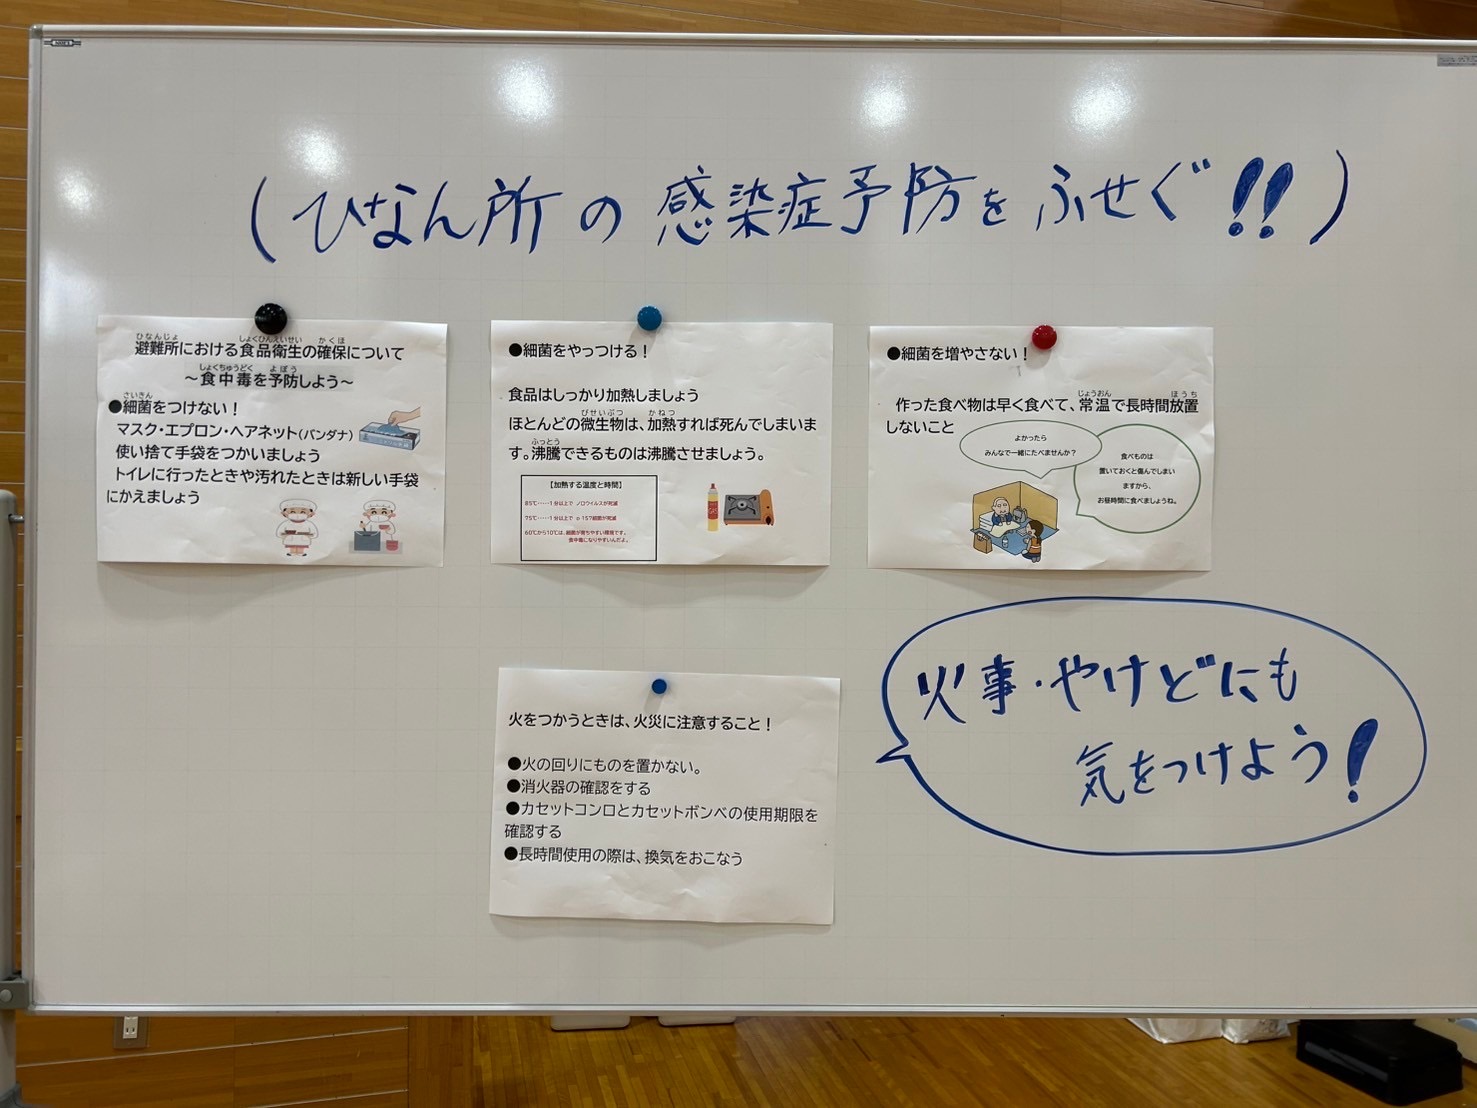 (ひなん所の感染症予防をふせぐ!!)
ひなんじょ しょくひんえいせい かくほ
避難所における食品衛生の確保について
しょくちゅうどく よぼう
～食中毒を予防しよう～
さいきん
●細菌をつけない！
マスク・エプロン・ヘアネット(バンダナ)
使い捨て手袋をつかいましょう
トイレに行ったときや汚れたときは新しい手袋
にかえましょう
●細菌をやっつける！
食品はしっかり加熱しましょう
びせいぶつ かねつ
ほとんどの微生物は、加熱すれば死んでしまいま
ふっとう
す。沸騰できるものは沸騰させましょう。
【加熱する温度と時間】
85℃……1分以上で ノロウイルスが死滅
75℃……1分以上で o 157細菌が死滅
60℃から10℃は、細菌が育ちやすい環境です。
食中毒になりやすいんだよ。
●細菌を増やさない！
じょうおん ほうち
作った食べ物は早く食べて、常温で長時間放置
しないこと
よかったら
みんなで一緒にたべませんか？
食べものは
置いておくと傷んでしまい
ますから、
お昼時間に食べましょうね。
火をつかうときは、火災に注意すること！
●火の回りにものを置かない。
●消火器の確認をする
●カセットコンロとカセットボンベの使用期限を
確認する
●長時間使用の際は、換気をおこなう
火事・やけどにも
気をつけよう!